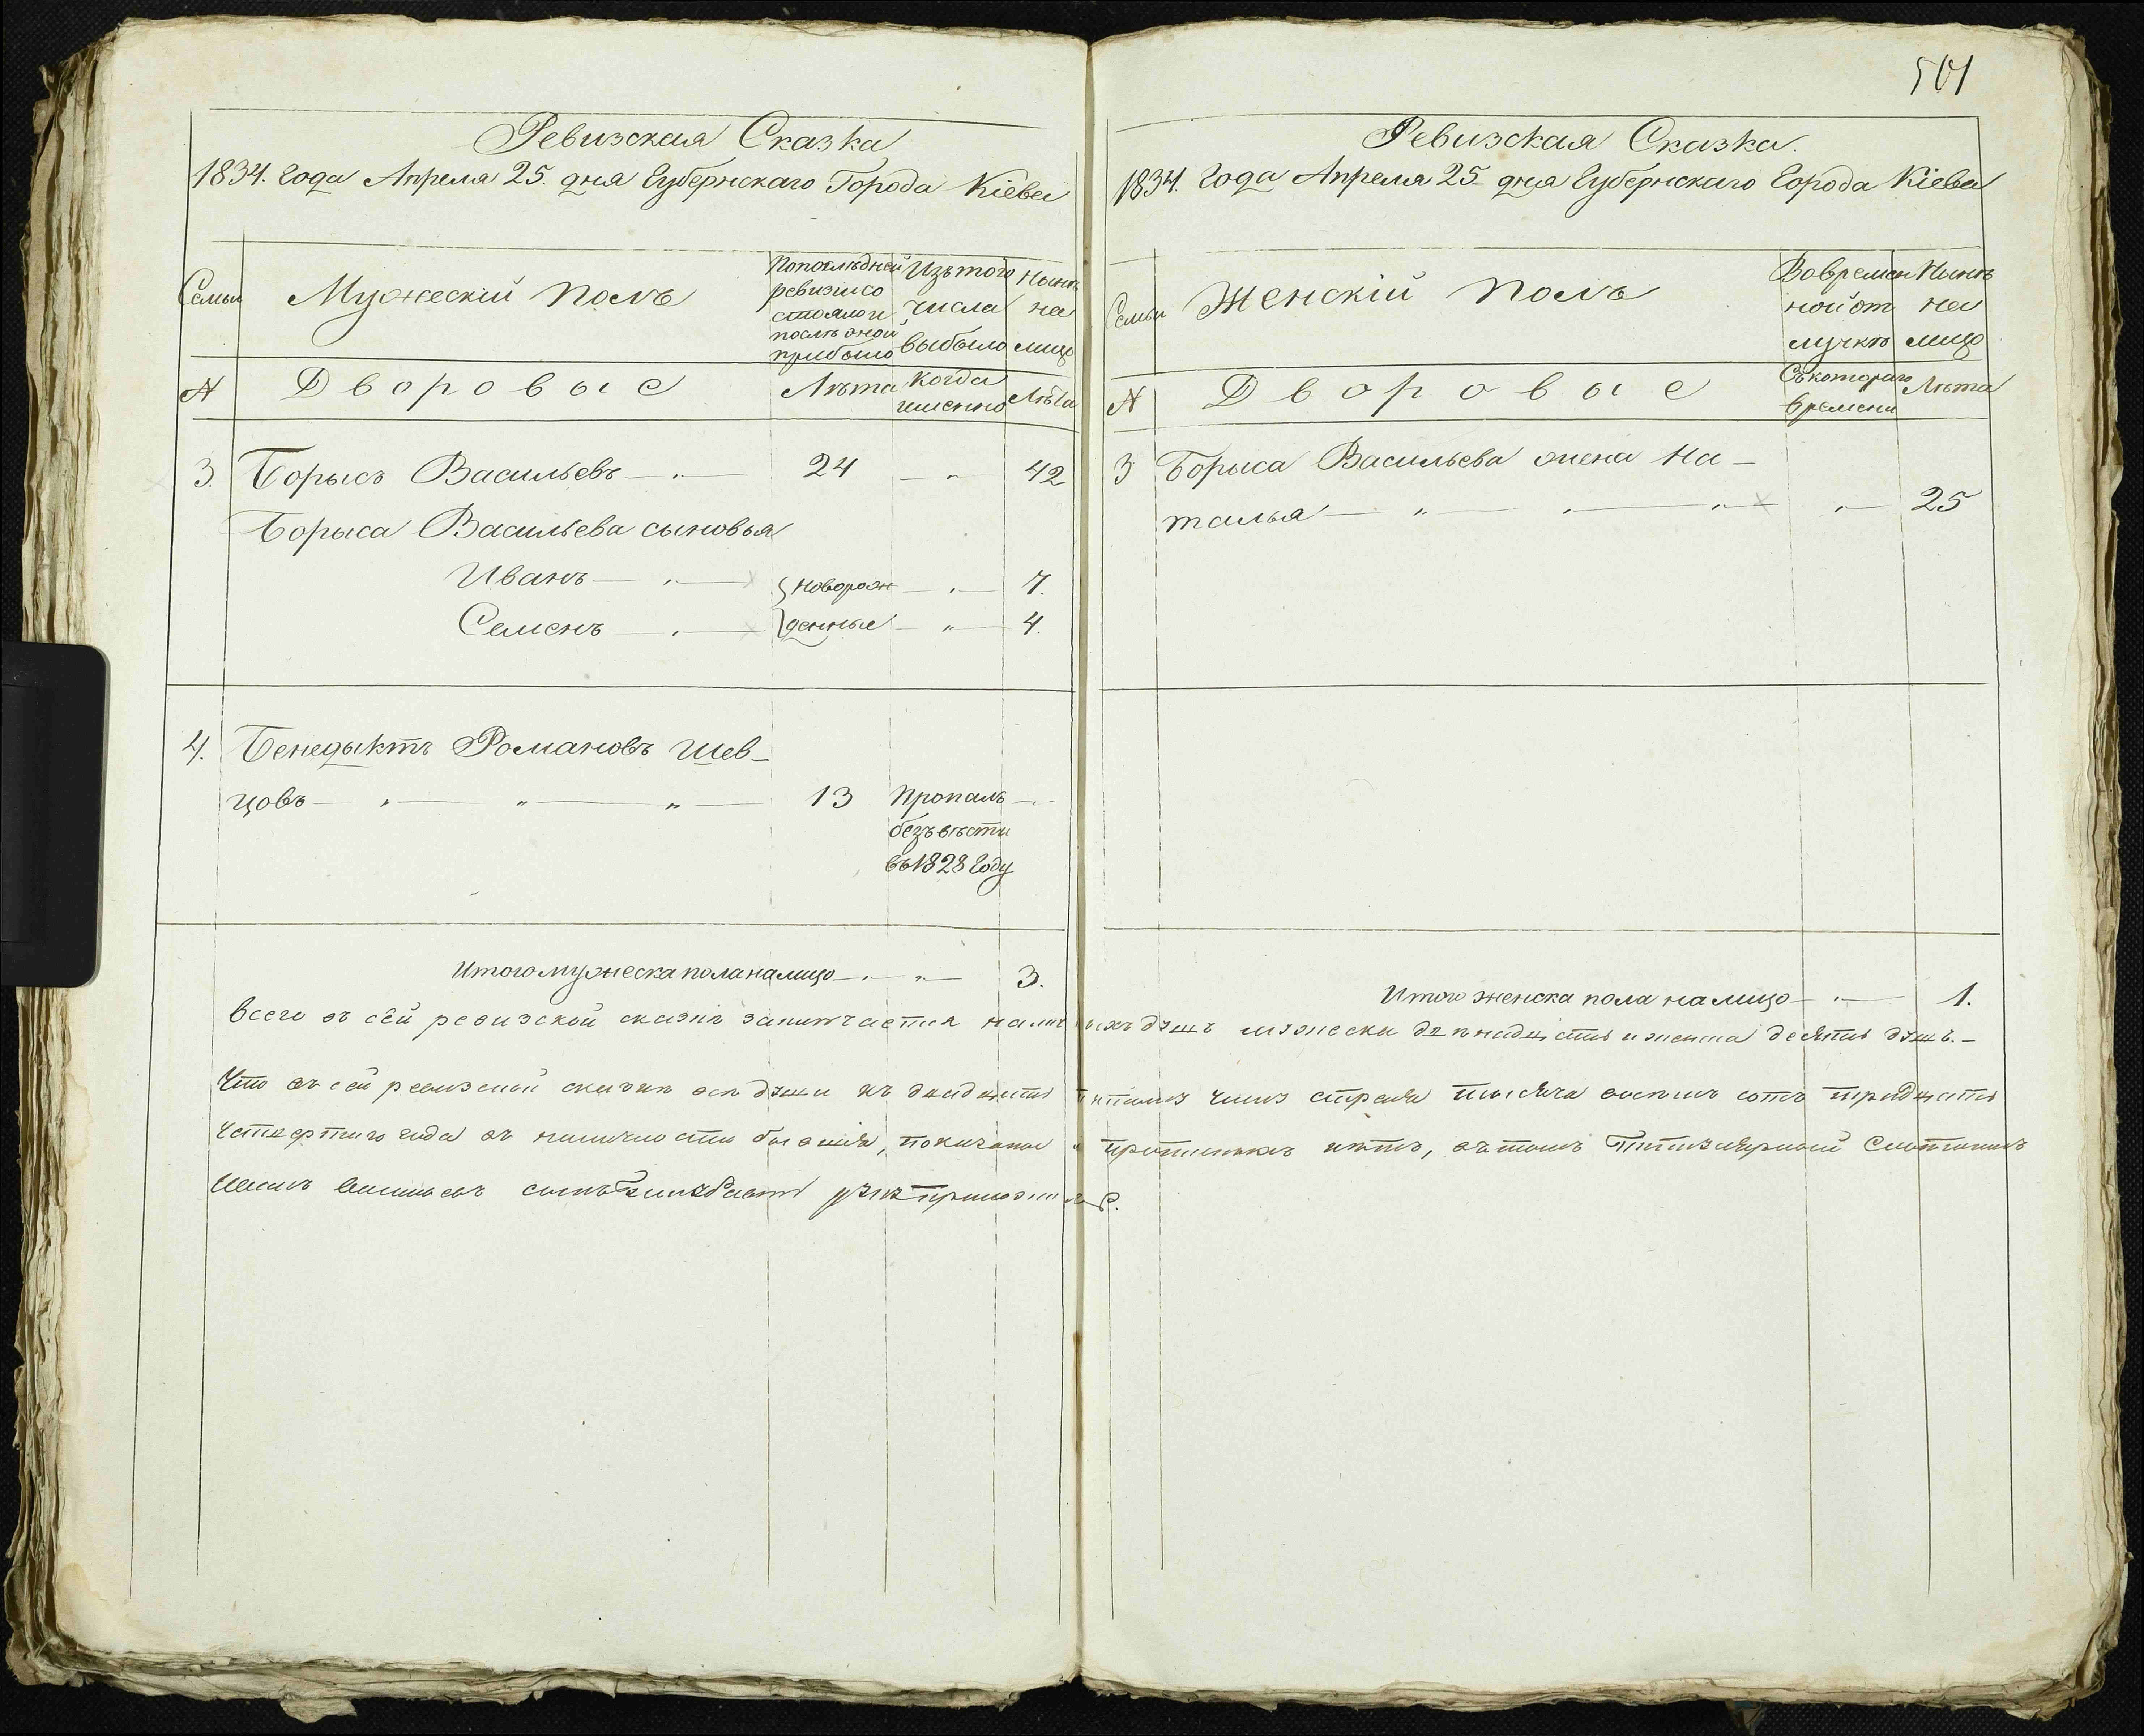 501
Ревизская Сказка
1834. года Апреля 25. дня Губернскаго Города Кіева
Семьи
Мужескій Полъ
По последней ревизіи со стояло и после оной прибыло
Изъ того числа выбыло
Нынѣ на лицо
№
Дворовые
Лѣта
Когда именно
Лѣта
3. Борысъ Васильевъ — 24 — „ 42
Борыса Васильева сыновья
Иванъ — „ — новорож — „ — 7.
Семенъ — „ — денные — „ — 4.
4. Бенедыктъ Романовъ Шев-
цовъ — „ — „ — „ — 13 Пропалъ —
безъ вѣсти
въ 1828 году
Итого мужеска пола на лицо — „ — „ — 3.
Ревизская Сказка.
1834. года Апреля 25 дня Губернскаго Города Кіева
Семьи
Женскій Полъ
Во времен ной от лучкѣ
Нынѣ на лицо
№
Дворовые
Съ котораго времени
Лѣта
3 Борыса Васильева жена На-
талья — „ — „ — „ — „ — 25
Итого женска пола на лицо — „ — 1.
Всего въ сей ревизской сказкѣ заключается наличныхъ душъ мужеска двенадцать и женска десять душъ. —
Что въ сей ревизской сказкѣ все души къ двадцать пятому числу апреля тысяча восемь сотъ тридцать
четвертаго года въ наличности бывшія, показаны и прописныхъ нетъ, въ томъ Титулярный Советникъ
руку приложилъ.